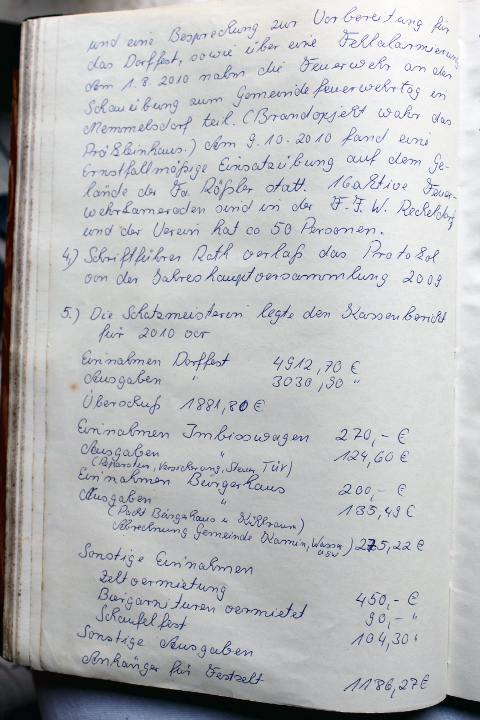 und eine Besprechung zur Vorbereitung für
das Dorffest, sowie über eine Fehlalarmierung
Am 1.8.2010 nahm die Feuerwehr an der
Schauübung zum Gemeindefeuerwehrtag in
Memmelsdorf teil. (Brandopjekt wahr das
Prößleinhaus.) Am 9.10.2010 fand eine
Ernstfallmäßige Einsatzübung auf dem Ge-
lände der Fa. Rößler statt. 16 aktive Feuer-
wehrkameraden sind in der F.F.W. Reckeldorf
und der Verein hat ca 50 Personen.
4.) Schriftführer Rath verlaß das Protokol
von der Jahreshauptversammlung 2009
5.) Die Schatzmeisterin legte den Kassenbericht
für 2010 vor
Einnahmen Dorffest 4912,70 €
Ausgaben " 3030,90 "
Überschuß 1881,80 €
Einnahmen Imbisswagen 270,- €
Ausgaben " 124,60 €
(Reparaten, Versicherung, Steuer, Tüv)
Einnahmen Bürgerhaus 200,- €
Ausgaben " 135,49 €
(Pacht Bürgerhaus u Kühlraum)
Abrechnung Gemeinde Kamin, Wasser usw) 275,22 €
Sonstige Einnahmen
Zeltvermietung 450,- €
Bargarnituren vermietet 90,- "
Schaufelfest 104,30 "
Sonstige Ausgaben
Anhänger für Festzelt 1186,27 €